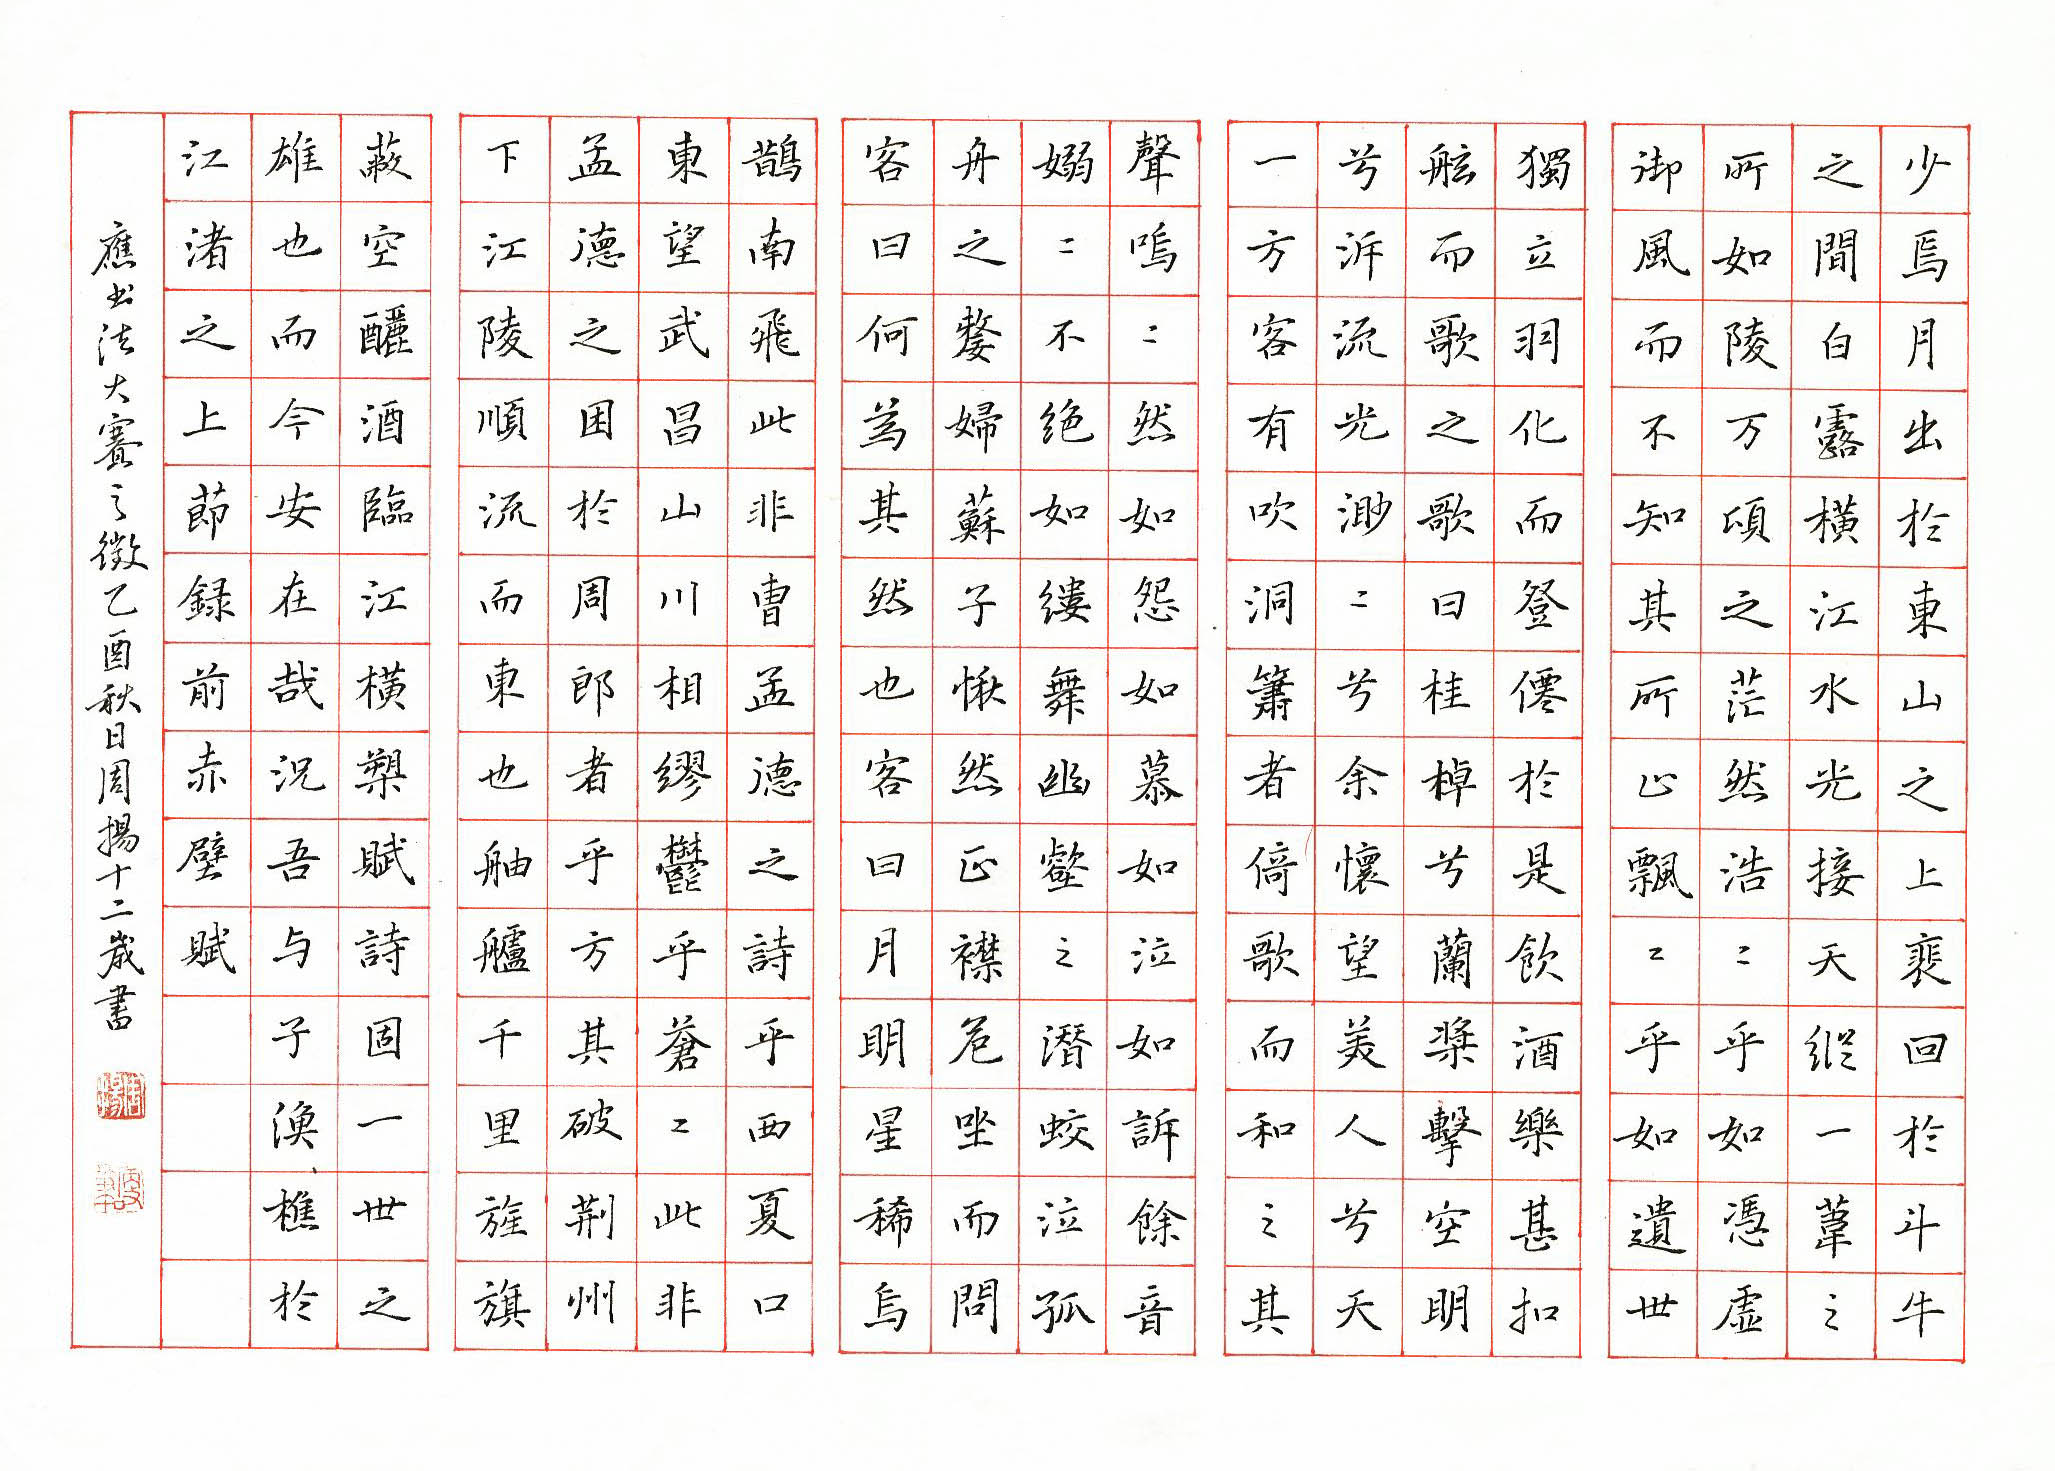 少焉月出於東山之上裴回於斗牛
之間白露橫江水光接天縱一葦之
所如陵万頃之茫然浩〻乎如憑虛
御風而不知其所止飄〻乎如遺世
獨立羽化而登僊於是飲酒樂甚扣
舷而歌之歌曰桂棹兮蘭槳擊空明
兮泝流光渺〻兮余懷望美人兮天
一方客有吹洞簫者倚歌而和之其
聲嗚〻然如怨如慕如泣如訴餘音
嫋〻不絕如縷舞幽壑之潛蛟泣孤
舟之嫠婦蘇子愀然正襟危坐而問
客曰何為其然也客曰月明星稀烏
鵲南飛此非曹孟德之詩乎西夏口
東望武昌山川相繆鬱乎蒼〻此非
孟德之困於周郎者乎方其破荊州
下江陵順流而東也舳艫千里旌旗
蔽空釃酒臨江橫槊賦詩固一世之
雄也而今安在哉況吾与子漁樵於
江渚之上節錄前赤壁賦
應书法大賽之徵乙酉秋日周揚十二歲書